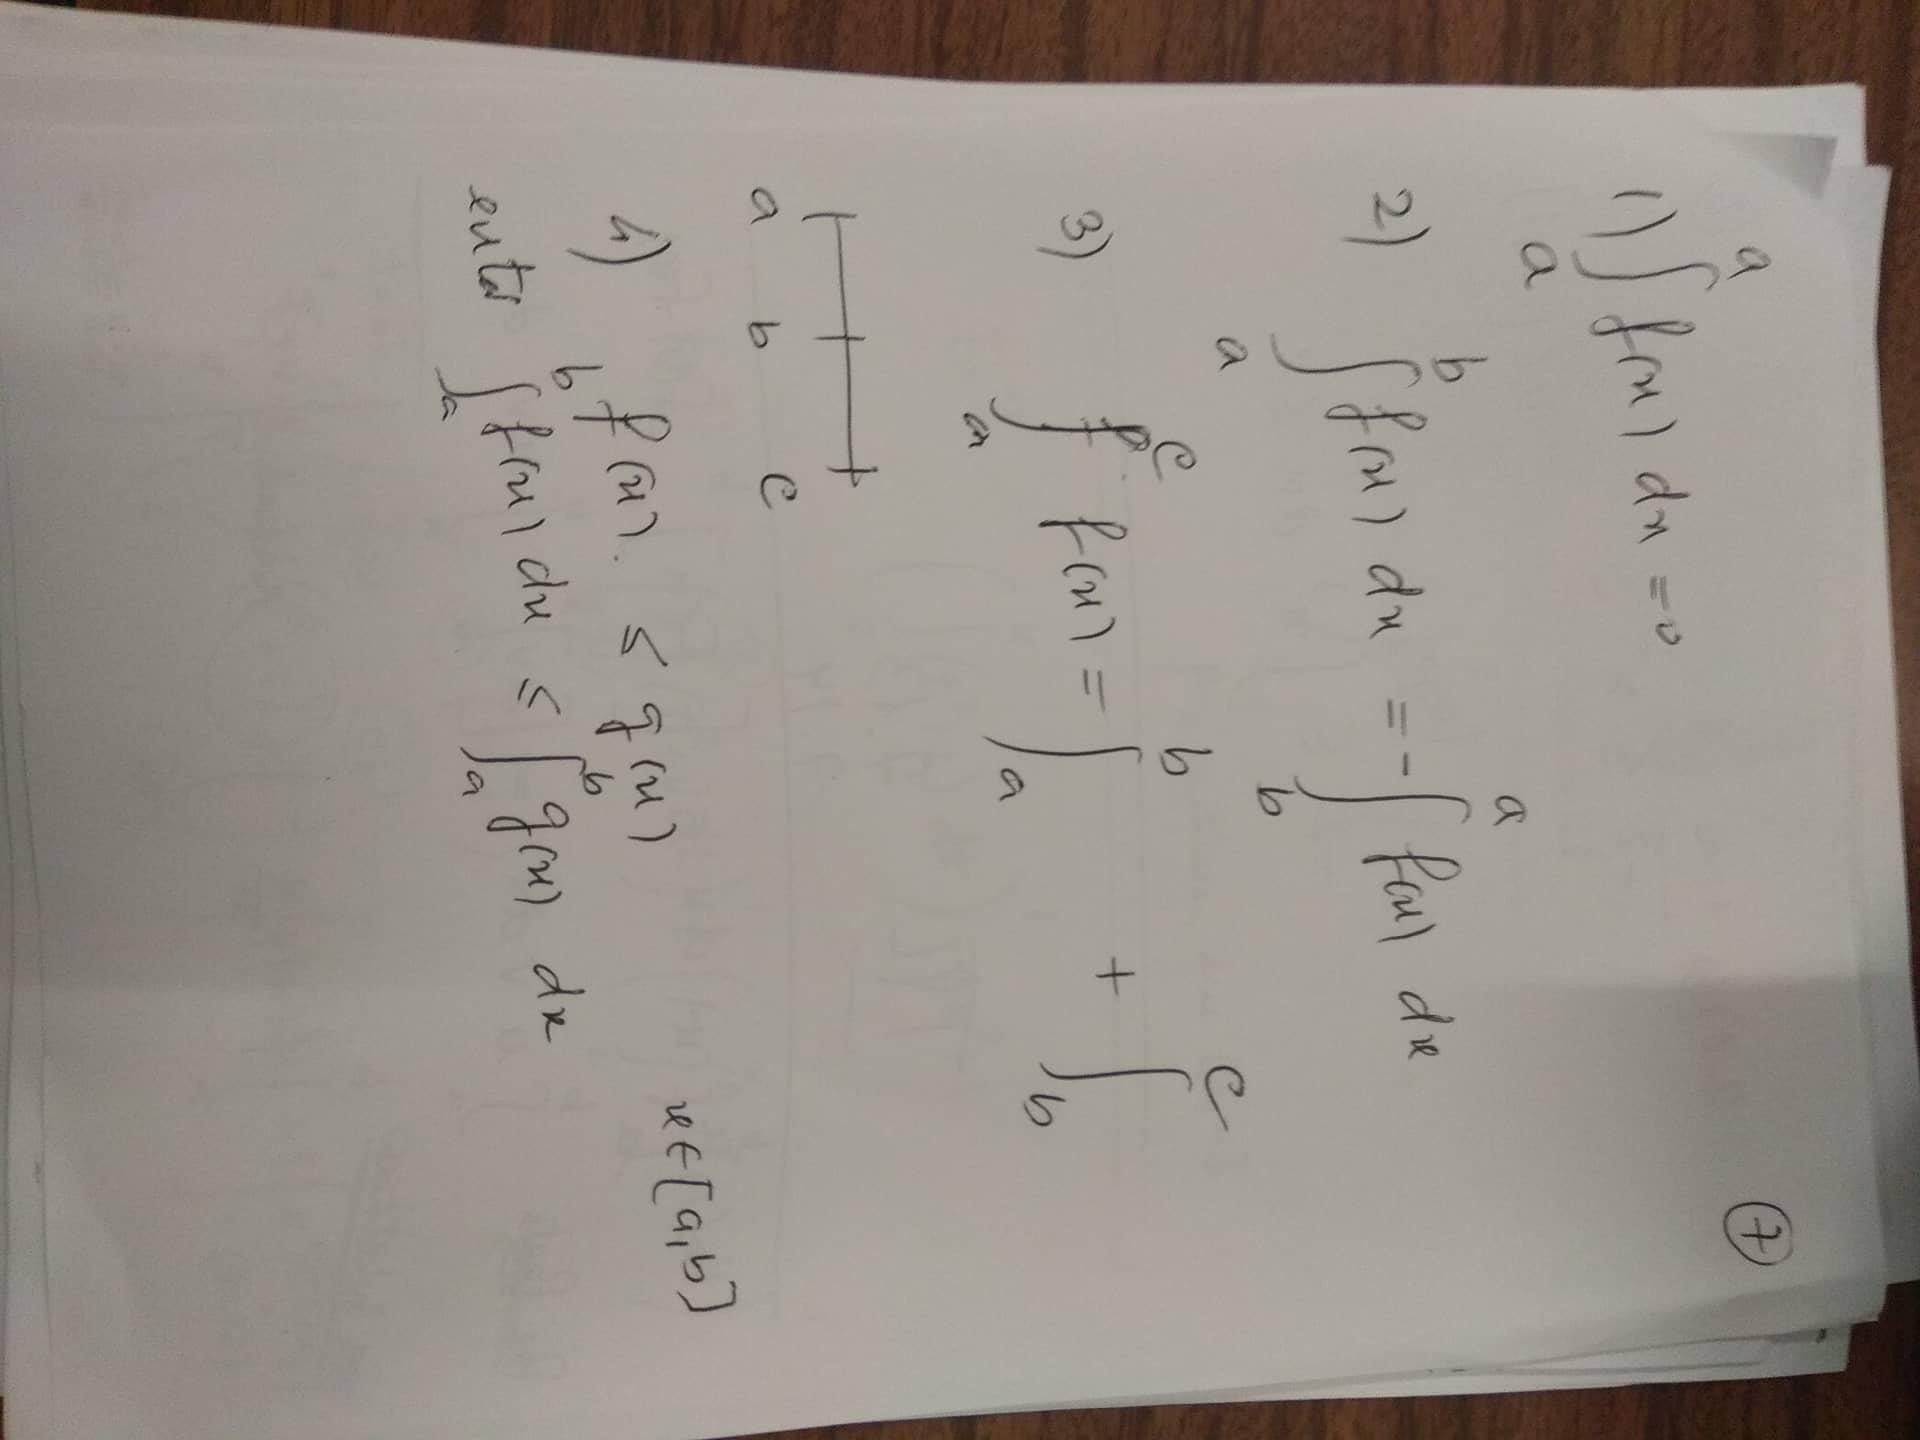 7
1) ∫_a^a f(x) dx = 0
2) ∫_a^b f(x) dx = - ∫_b^a f(x) dx
3) ∫_a^c f(x) = ∫_a^b + ∫_b^c
a b c
4) f(x). ≤ g(x) x ∈ [a,b]
∫_a^b f(x) dx ≤ ∫_a^b g(x) dx